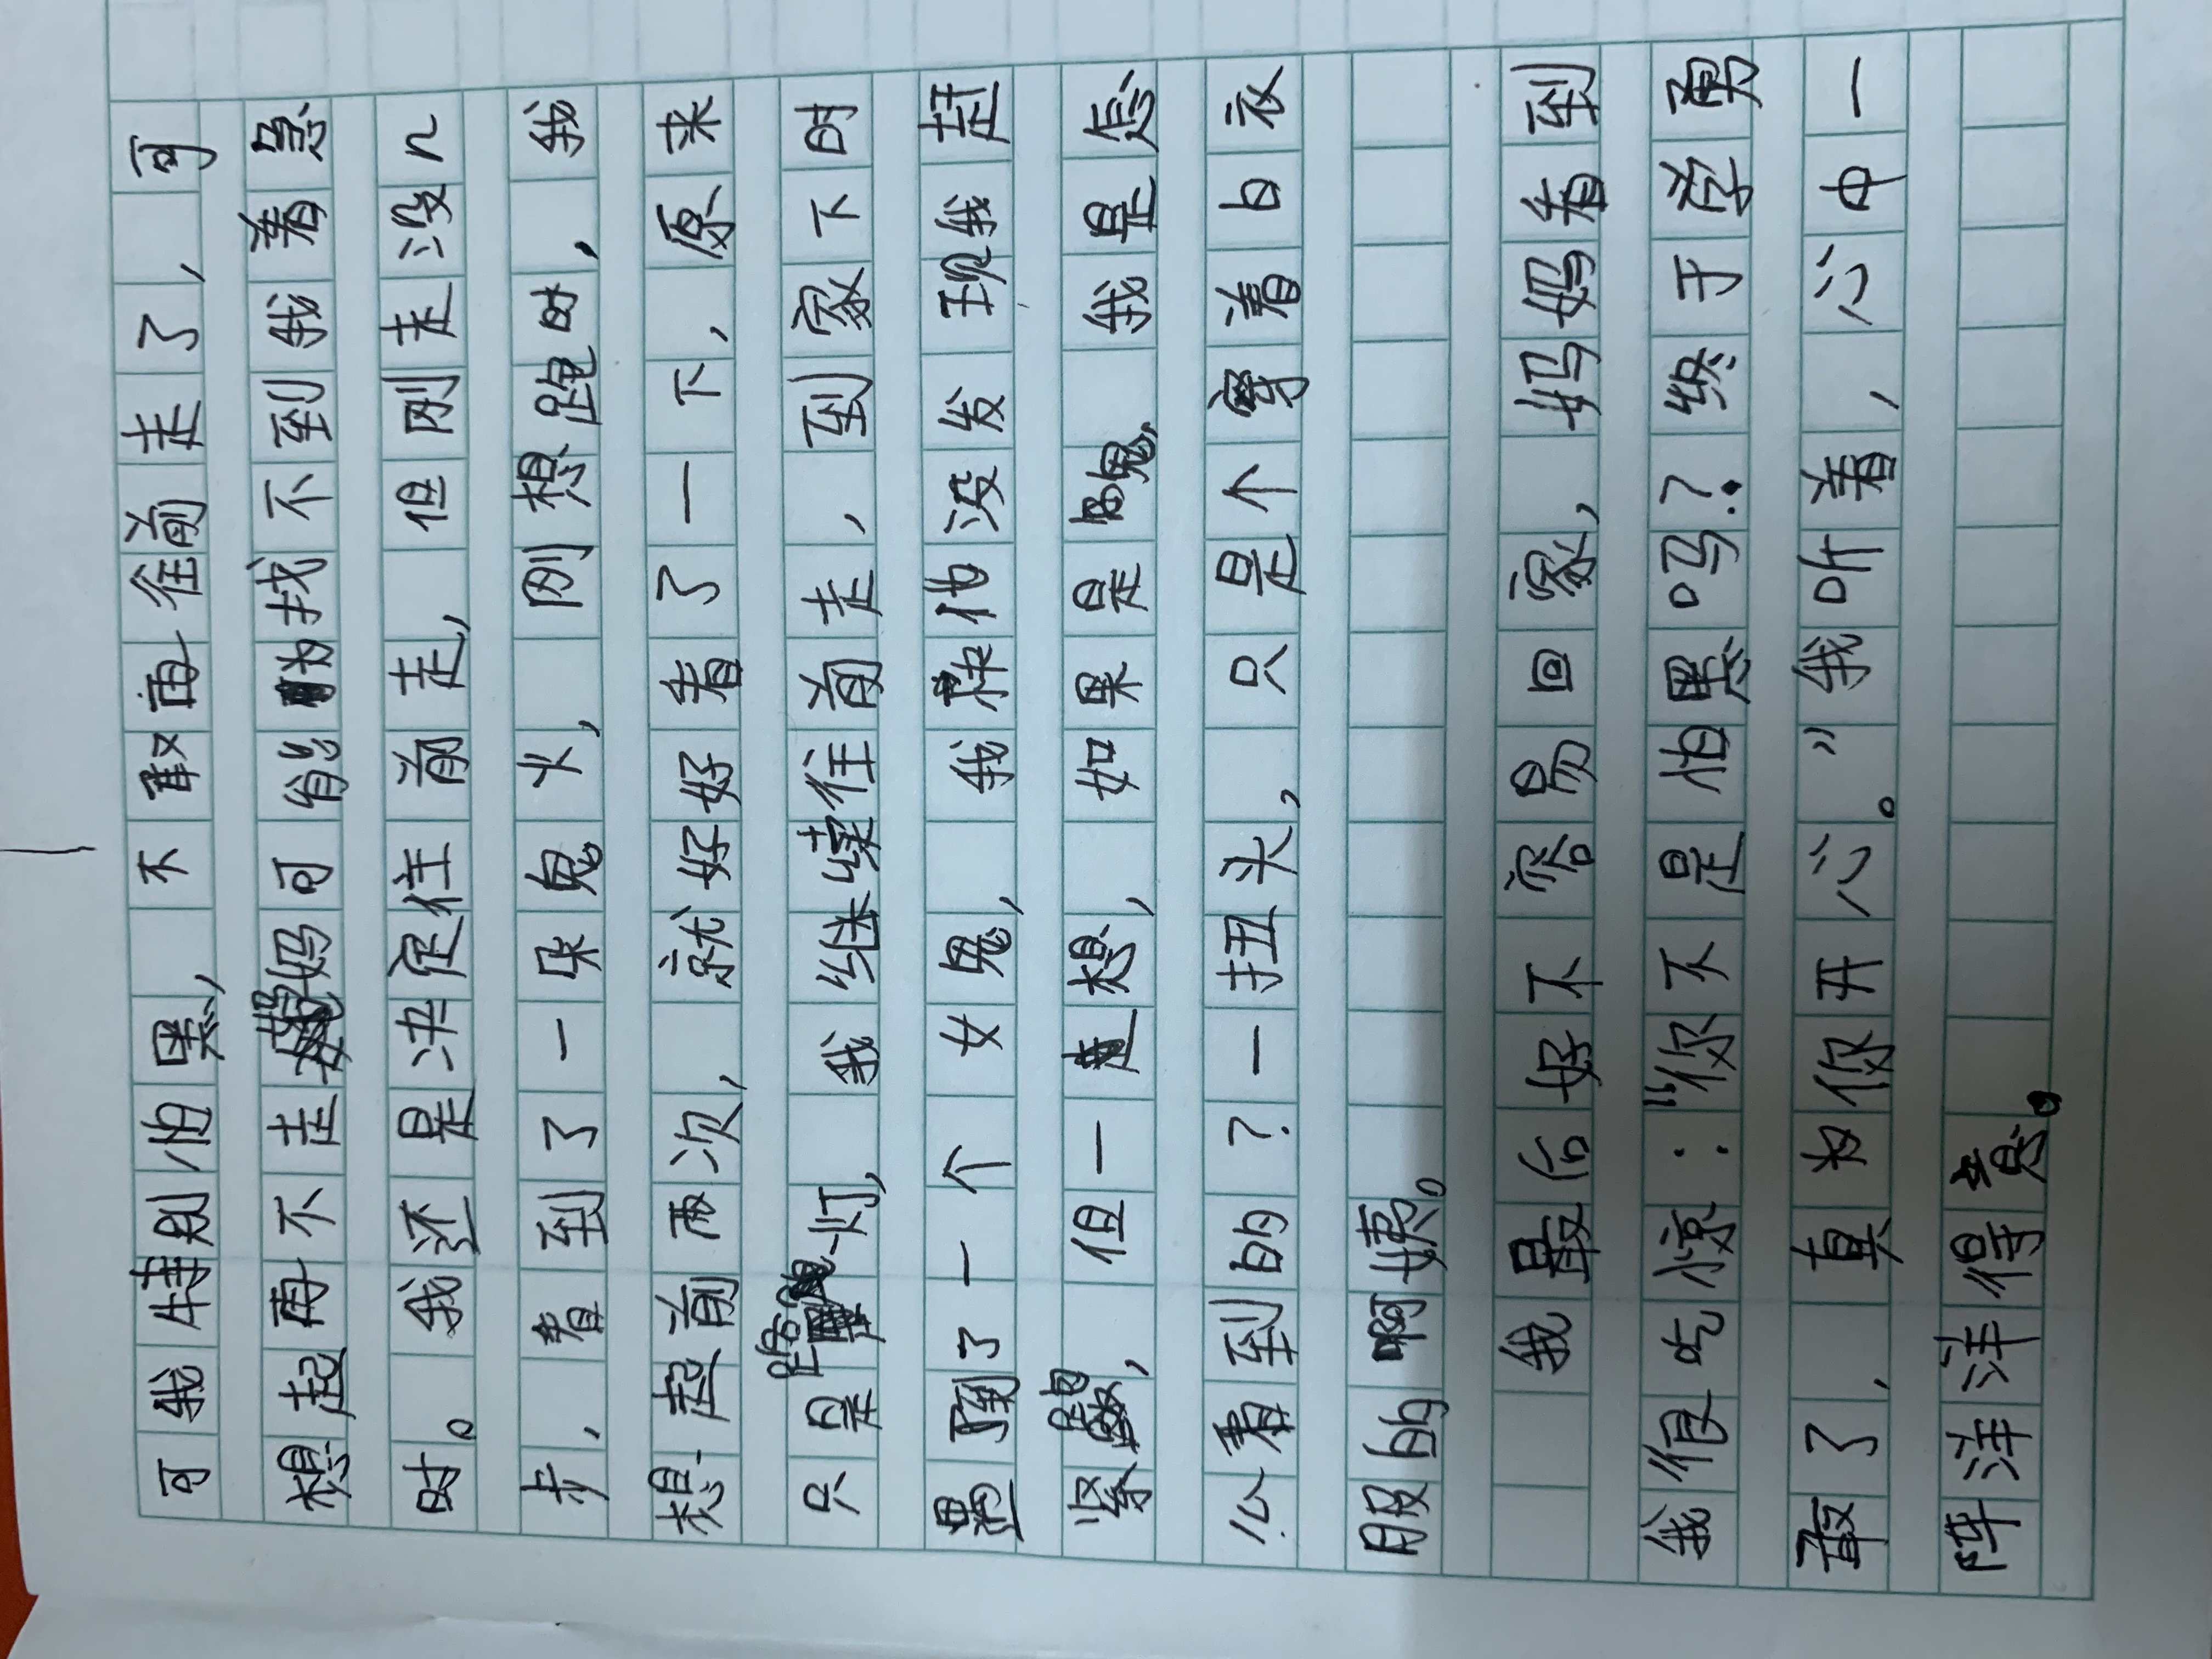 可我特别怕黑，不敢再往前走了，可
想起再不走妈妈可能为找不到我着急
时。我还是决定往前走，但刚走没n
步，看到了一朵鬼火，刚想跑时，我
想起前两次，就好好看了一下，原来
只是路灯，我继续往前走，到家下时
遇到了一个女鬼，我趁他没发现我赶
紧跑，但一走想，如果是鬼，我是怎
么看到的？一扭头，只是个穿着白衣
服的啊姨。
我最后好不容易回家，妈妈看到
我很吃惊：“你不是怕黑吗？终于学勇
敢了，真为你开心。”我听着，心中一
阵洋洋得意。